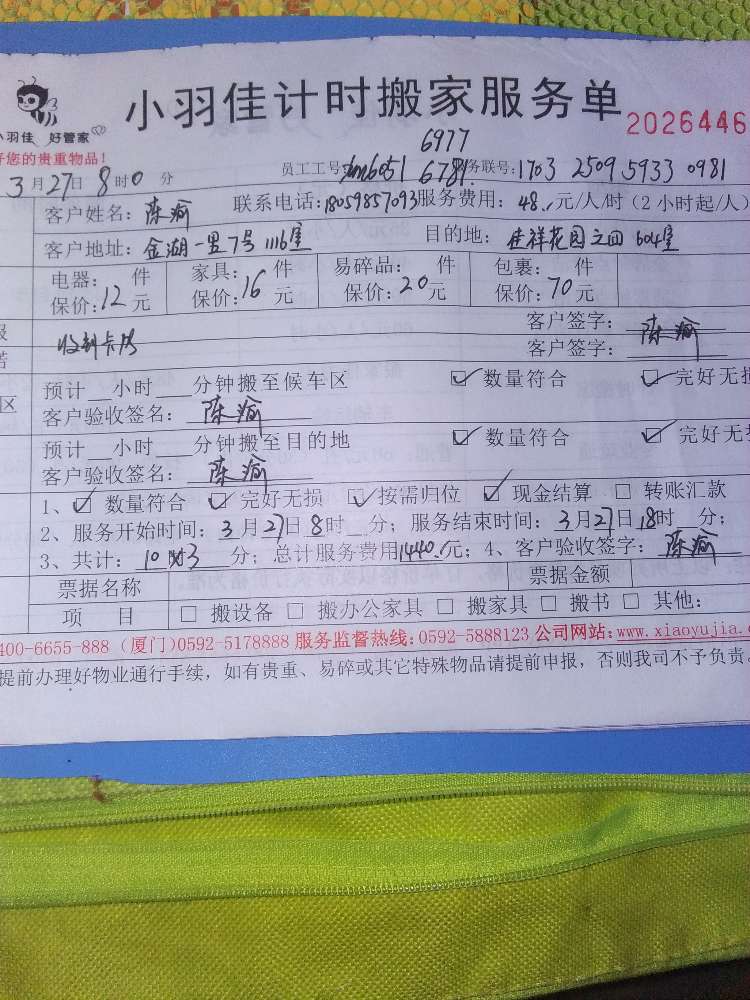 小羽佳计时搬家服务单
小羽佳 好管家
2026446
好您的贵重物品!
6977
3月27日8时0分 员工工号: 6051 6781 务联号: 1703 2509 5933 0981
客户姓名: 陈瑜 联系电话: 18059857093 服务费用: 48.元/人/时 (2小时起/人)
客户地址: 金湖一里7号1116室 目的地: 佳祥花园之四 604室
电器: 件 家具: 件 易碎品: 件 包裹: 件
保价: 12元 保价: 16元 保价: 20元 保价: 70元
客户签字: 陈瑜
收到卡片
客户签字:
预计__小时___分钟搬至候车区 ☑数量符合 ☑完好无损
客户验收签名: 陈瑜
预计__小时___分钟搬至目的地 ☑数量符合 ☑完好无损
客户验收签名: 陈瑜
1、☑数量符合 ☑完好无损 ☑按需归位 ☑现金结算 □转账汇款
2、服务开始时间: 3月27日8时__分; 服务结束时间: 3月27日18时__分;
3、共计: 10时3 分; 总计服务费用1440.元; 4、客户验收签字: 陈瑜
票据名称 票据金额
项 目 □搬设备 □搬办公家具 □搬家具 □搬书 □其他:
400-6655-888 (厦门)0592-5178888 服务监督热线: 0592-5888123 公司网站: www.xiaoyujia.
提前办理好物业通行手续,如有贵重、易碎或其它特殊物品请提前申报,否则我司不予负责。